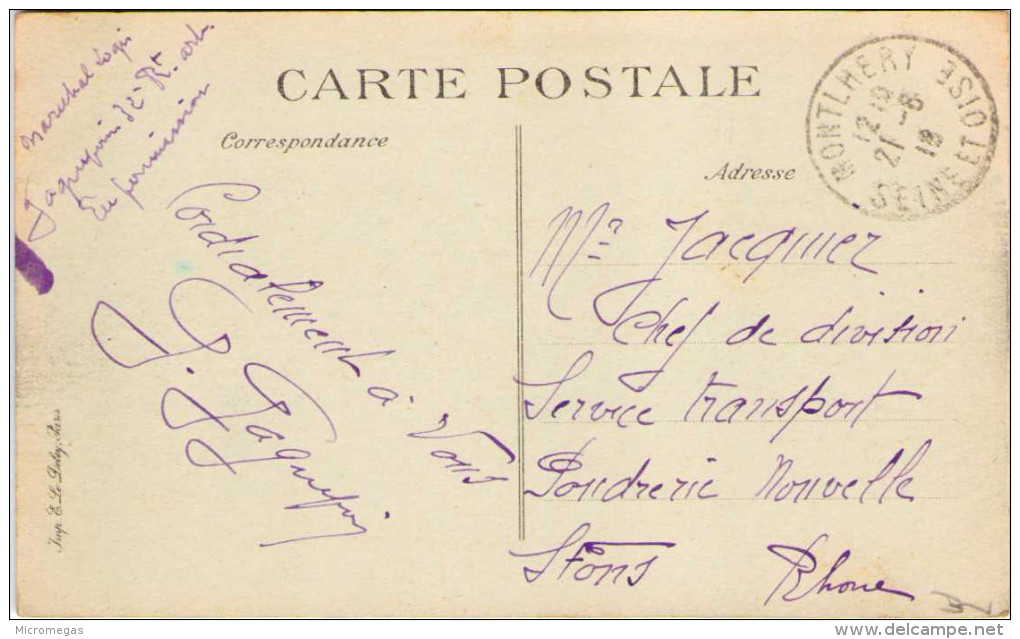 CARTE POSTALE
Correspondance
Adresse
MONTLHERY
12 15
21 - 8
18
SEINE ET OISE
Marechal Logis
Jaquefoin 32e Rt. art.
En permission
Cordialement à Vous
J. Jaquefoin
Mr Jacquier
Chef de division
Service transport
Poudrerie Nouvelle
St Fons Rhone
Imp. E. Le Deley, Paris
Micromegas
delcampe.net